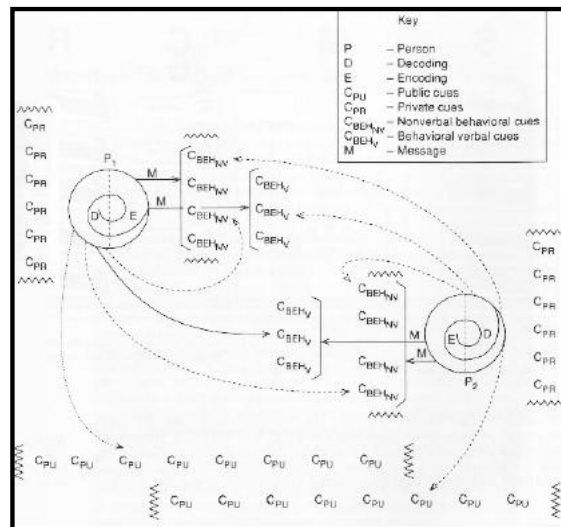 Key
P – Person
D – Decoding
E – Encoding
C_PU – Public cues
C_PR – Private cues
C_BEH_NV – Nonverbal behavioral cues
C_BEH_V – Behavioral verbal cues
M – Message
C_PR
C_PR
C_PR
C_PR
C_PR
C_PR
P₁
D E
M
M
C_BEH_NV
C_BEH_NV
C_BEH_NV
C_BEH_NV
C_BEH_V
C_BEH_V
C_BEH_V
C_BEH_V
C_BEH_V
C_BEH_V
C_BEH_NV
C_BEH_NV
C_BEH_NV
C_BEH_NV
M
M
E D
P₂
C_PR
C_PR
C_PR
C_PR
C_PR
C_PR
C_PU C_PU C_PU C_PU C_PU C_PU C_PU C_PU
C_PU C_PU C_PU C_PU C_PU C_PU C_PU C_PU